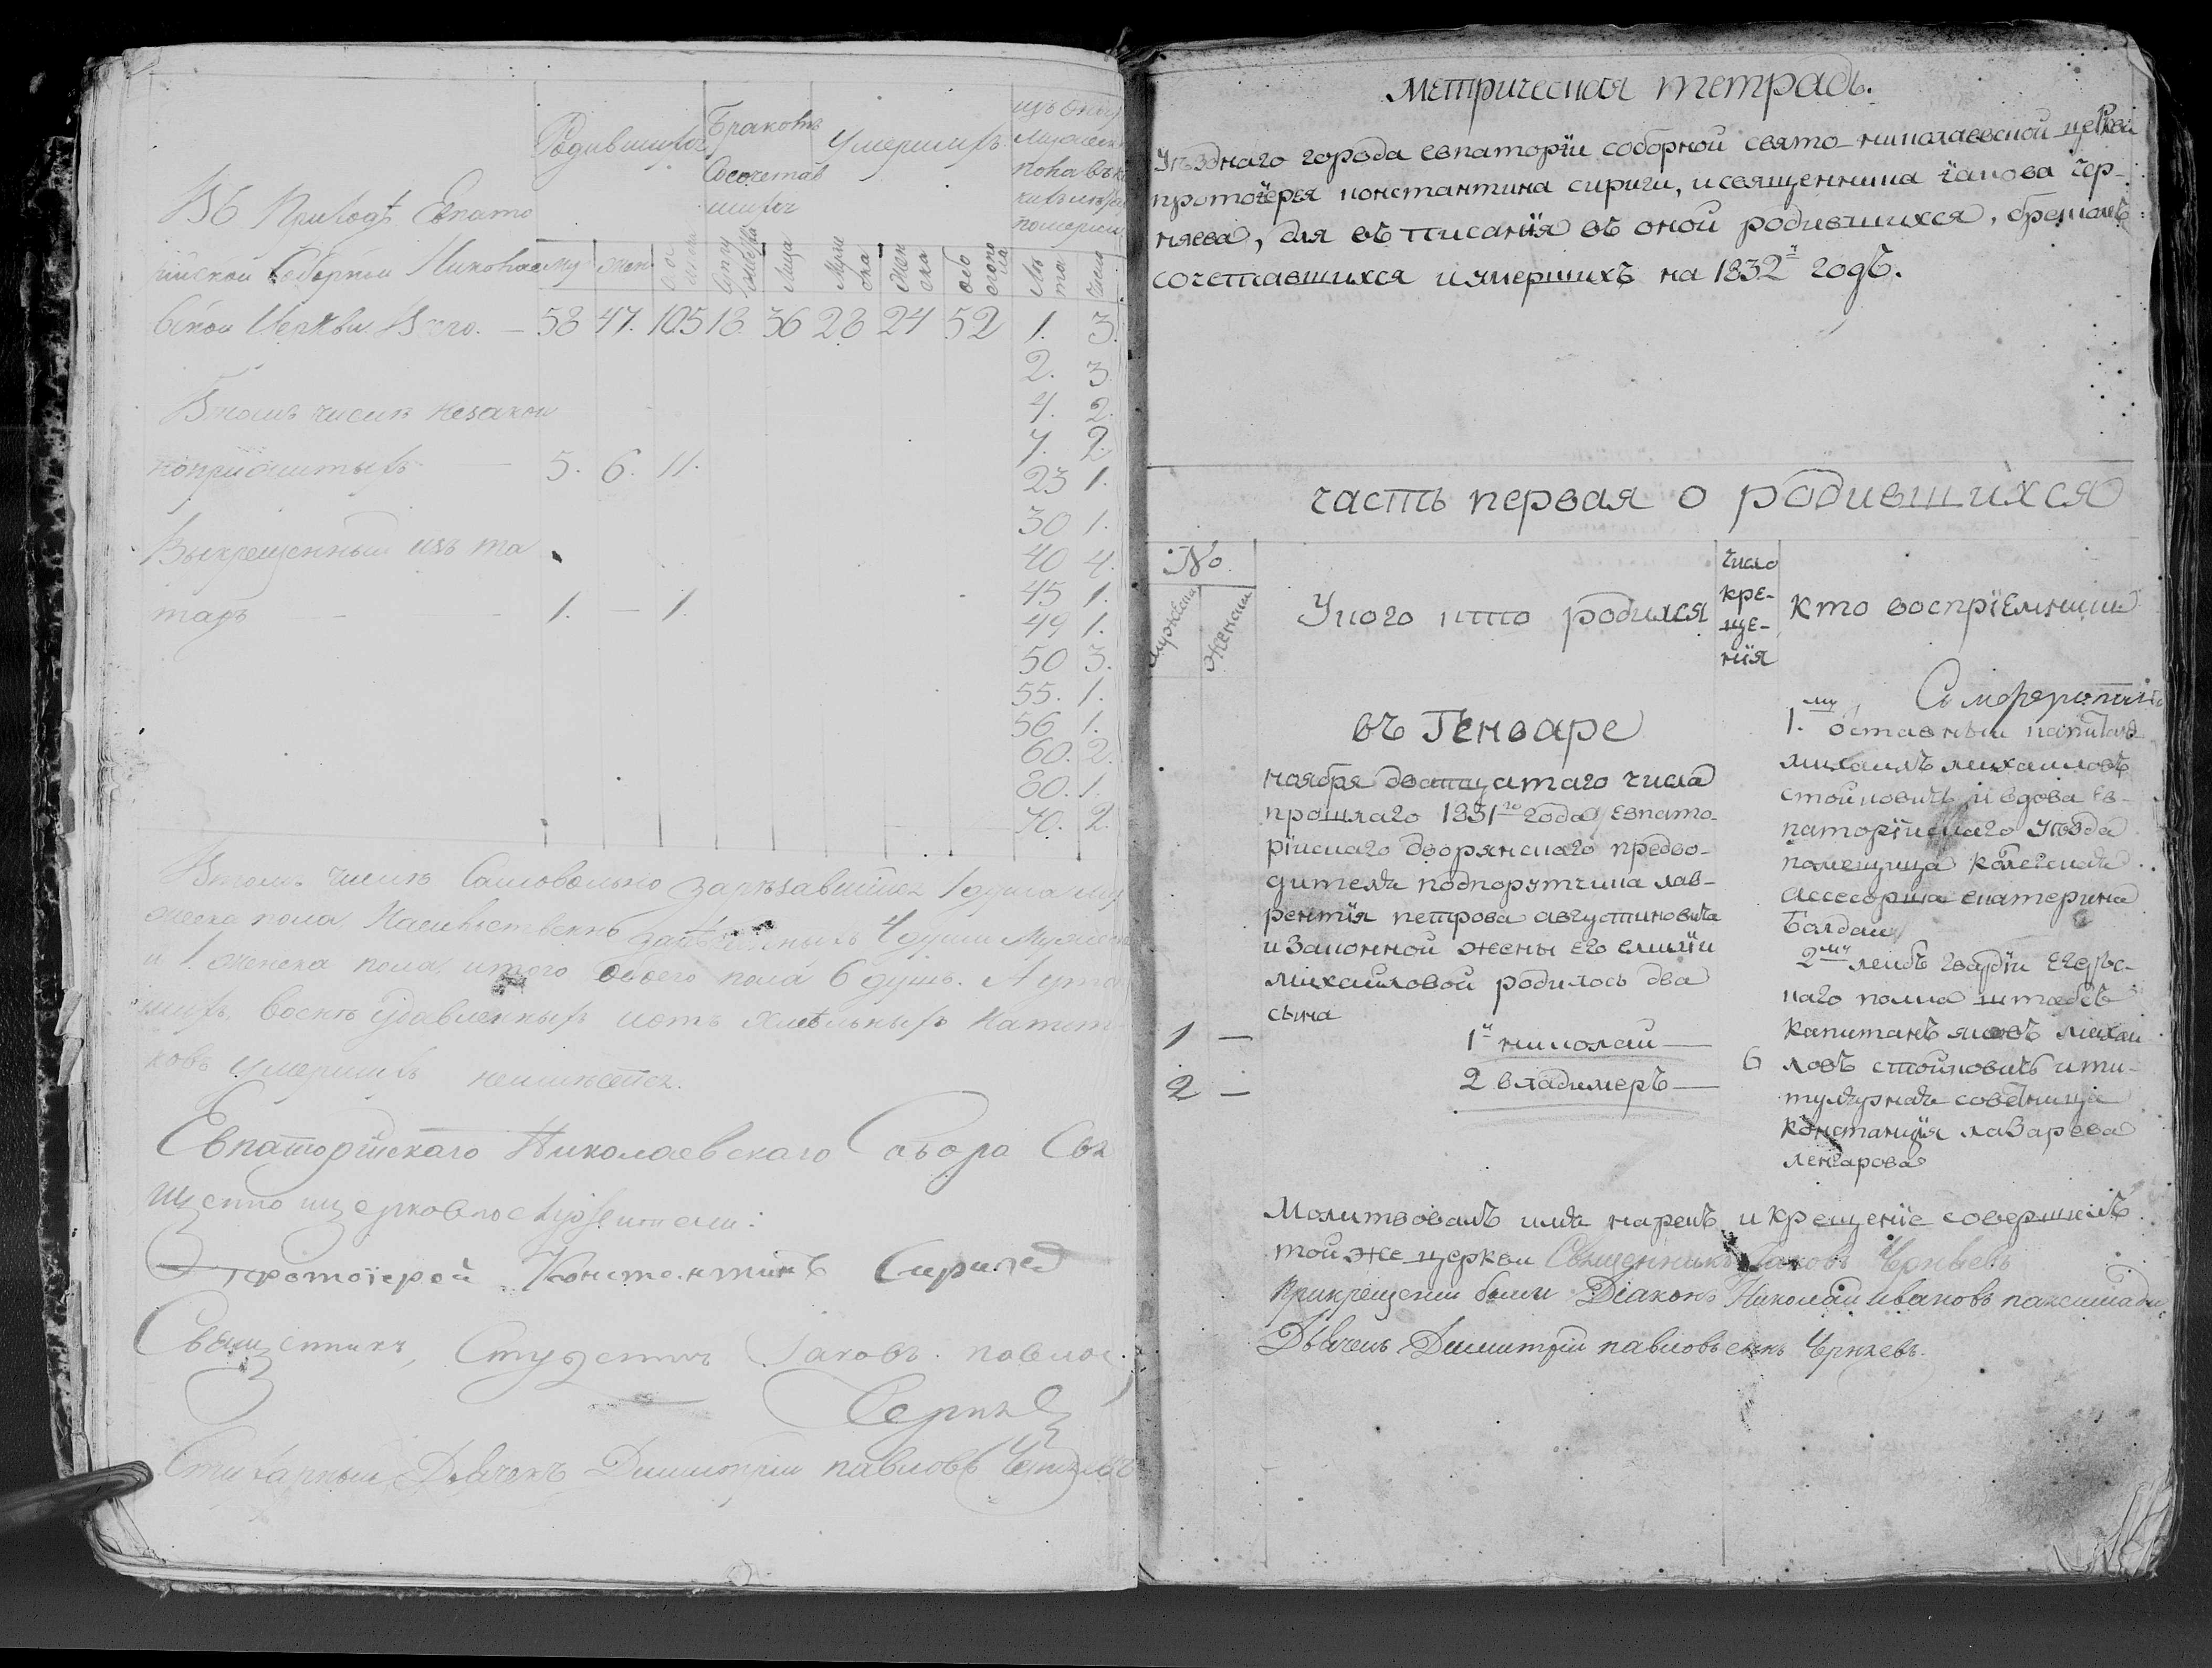 Родившихся
Браковъ
Сочетав
шихся
Умершихъ
изъ онаго
мужеска
пола въ ка
кихъ лѣтахъ
померли
Въ Приходѣ Евпато
рійской Соборной Николае
му
жен
Лица
Муж
ска
Жен
ска
обо
его по
ла
Лѣ
та
Число
вской Церкви Всего. — 58 47. 105 18. 36 28 24 52 1. 3.
2. 3
4. 2.
Втомъ числѣ незакон
7. 2.
норожденныхъ — 5. 6. 11.
23 1.
30 1.
Выкрещенный изъ та
40 4.
45 1.
таръ — — 1. — 1.
49 1.
50 3.
55. 1.
56 1.
60. 2.
80. 1.
70. 2.
Втомъ числѣ Самовольно зарѣзавшійся 1 душа му
жеска пола, Насильственно 4 души Мужеска
и 1. женска пола, итого обоего пола 6 душъ. А
Воспъ и отъ
ковъ умершихъ неимѣется.
Евпаторійскаго Николаевскаго Собора Свя
щенно церковнослужители:
Протоіерей Константинъ Сирига
Священникъ, Студентъ Іаковъ Павлов.
Черняев
Стихарный Дьячекъ Димитрій павловъ Черняевъ
метрическая тетрадь.
Уѣзднаго города евпаторїи соборной свято-николаевской церкви
протоїерея константина сириги, исвященника їакова чер-
няева, для въписанїя въ оной родившихся, бракомъ
сочетавшихся иумершихъ на 1832й годъ.
часть первая о родившихся
No
мужески
женски
Укого кто родился
Число
кре-
ще-
нїя
кто воспрїемники
въ Генваре
ноября двацатаго числа
прошлаго 1831го года, евпато-
рїискаго дворянскаго предво-
дителя подпорутчика лав-
рентїя петрова августиновича
и законной жены его емилїи
михаиловой родилось два
сына
1 — 1й николаи —
2 — 2 владимеръ — 6
1.му
отставныи капитанъ
михаилъ михаиловъ
стойковичъ, и вдова ев-
паторїискаго уѣзда
помещица колежская
ассесорша екатерина
Балдани
2мй леибъ гвардїи егерьс-
каго полка штабсъ
капитанъ яковъ михаи
ловъ стойковичъ ити-
тулярная советница
констанція лазарева
ленгарова
Молитвовалъ имя нарекъ, и крещенїе совершилъ
тойже церкви Священникъ Іаковъ Черняевъ
Прикрещеніи были Діаконъ Николай Ивановъ
Дьячекъ Димитрій павловъ сынъ Черняевъ.